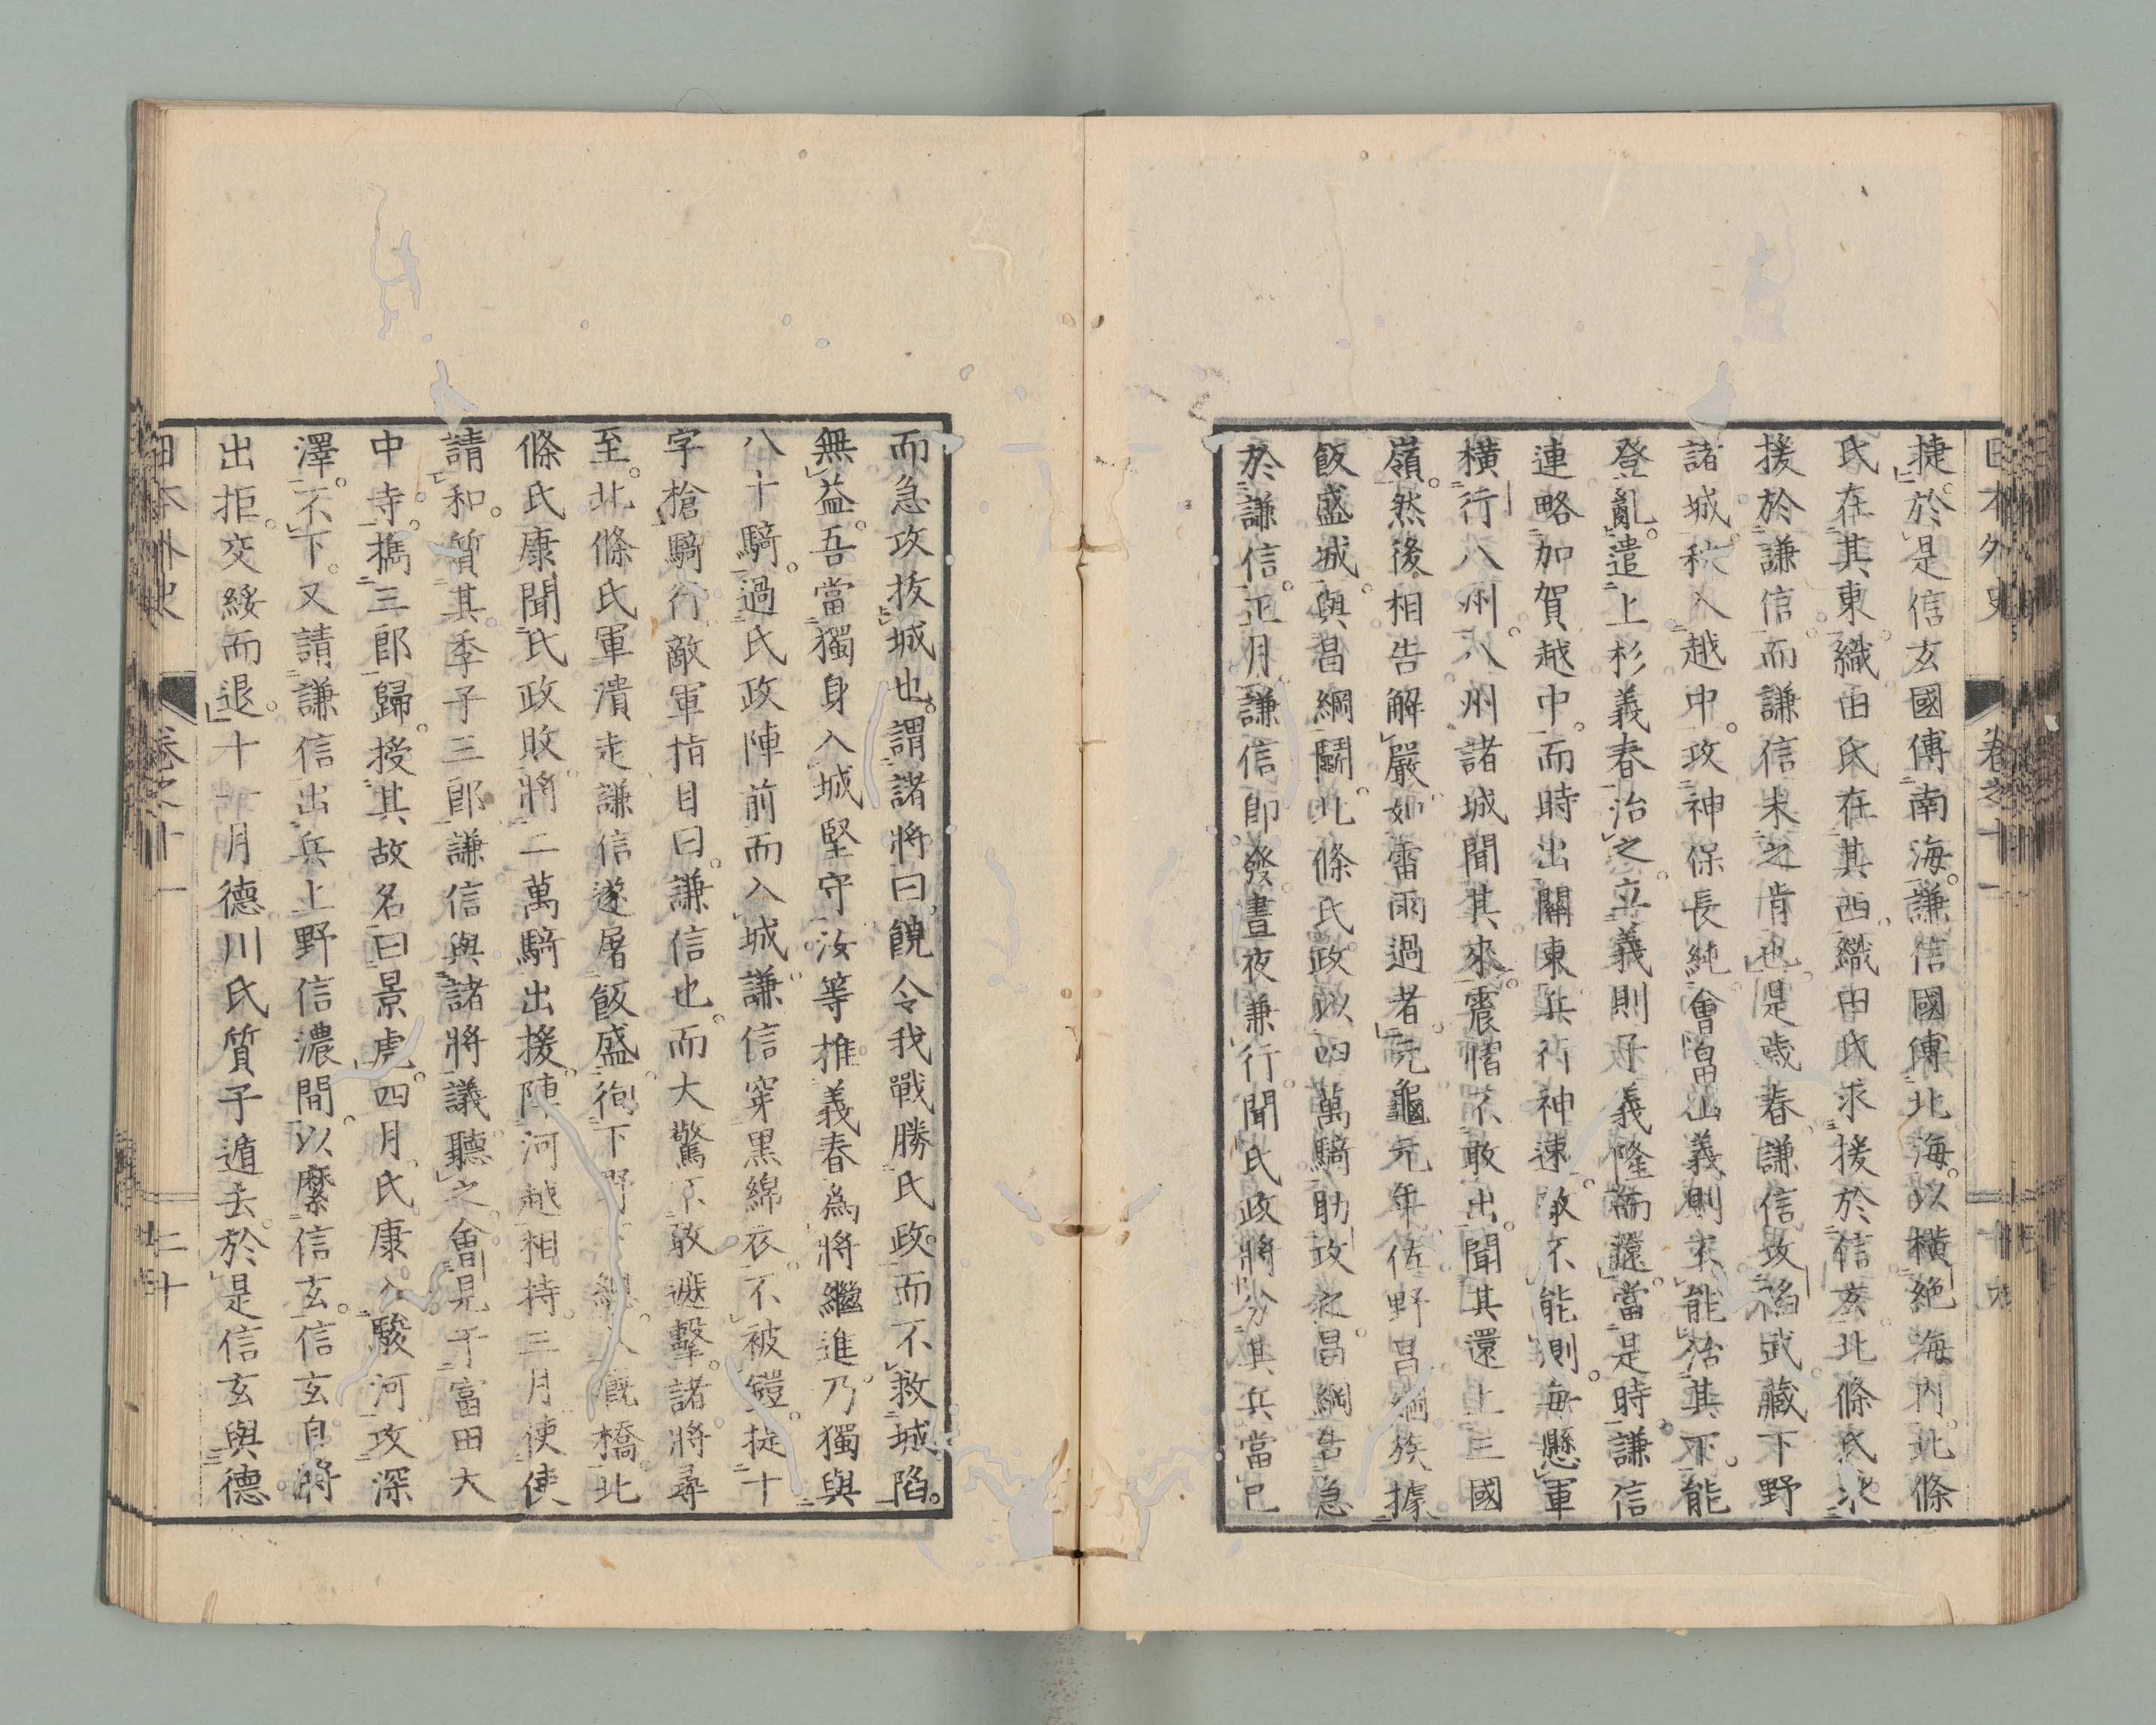 日本外史 卷之十一
捷於是信玄國傳南海謙信國傳北海以横絶海内北條
氏在其東織田氏在其西織田氏求援於信玄北條氏求
援於謙信而謙信未之肯也是歳春謙信攻䧟武藏下野
諸城秋入越中攻神保長純會畠山義則不能治其下能
登亂遣上杉義春治之立義則子義隆而還當是時謙信
連略加賀越中而時出關東兵行神速敵不能測毎懸軍
横行八州八州諸城聞其來震慴不敢出聞其還上三國
嶺然後相告解嚴如雷雨過者元龜元年佐野昌綱族據
飯盛城與昌綱鬪北條氏政以四萬騎助攻之昌綱告急
於謙信正月謙信即發晝夜兼行聞氏政將分其兵當已
而急攻抜城也謂諸將曰饒令我戰勝氏政而不救城陷
無益吾當獨身入城堅守汝等推義春爲將繼進乃獨與
八十騎過氏政陣前而入城謙信穿黒綿衣不被鎧提十
字槍騎行敵軍指目曰謙信也而大驚不敢遮擊諸將尋
至北條氏軍潰走謙信遂屠飯盛徇下野 厩橋北
條氏康聞氏政敗將二萬騎出援陣河越相持三月使使
請和質其季子三郎謙信與諸將議聽之會見于富田大
中寺攜三郎歸授其故名曰景虎四月氏康入駿河攻深
澤不下又請謙信出兵上野信濃間以縻信玄信玄自將
出拒交綏而退十一月德川氏質子遁去於是信玄與德
日本外史 卷之十一 二十